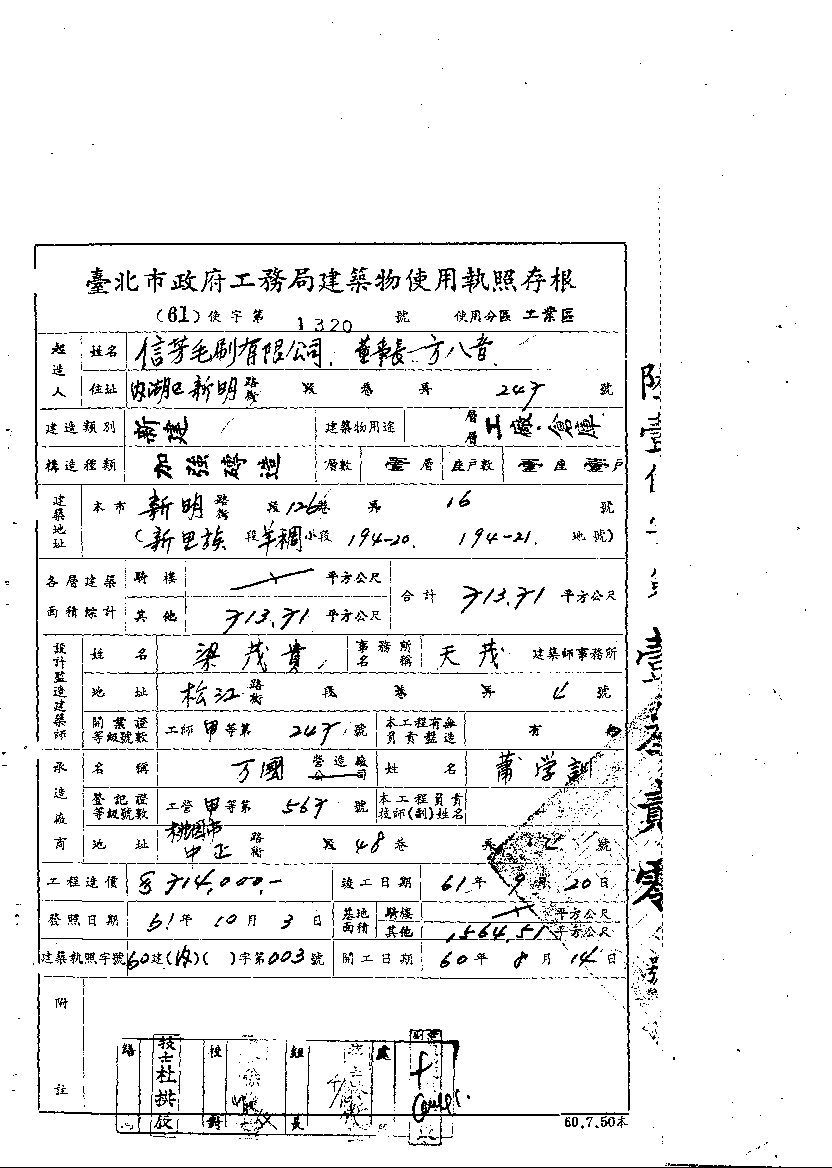 臺北市政府工務局建築物使用執照存根
(61)使字第 1320 號 使用分區 工業區
起造人 姓名 信芳毛刷有限公司. 董事長 方八音
住址 內湖區新明 路街 段 巷 弄 247 號
建造類別 新建 建築物用途 層層 工廠.倉庫
構造種類 加強磚造 層數 壹層 座戶數 壹座 壹戶
建築地址 本市 新明 路街 段 126巷 弄 16 號
(新里族 段 羊稠 小段 194-20. 194-21. 地號)
各層建築面積綜計 騎樓 平方公尺 合計 713.71 平方公尺
其他 713.71 平方公尺
設計監造建築師 姓名 梁茂貴 事務所名稱 天茂 建築師事務所
地址 松江 路街 段 巷 弄 號
開業證等級號數 工師 甲 等第 247 號 本工程有無負責監造 有
承造廠商 名稱 万國 營造廠公司 姓名 蕭学訓
登記證等級號數 工營 甲 等第 567 號 本工程負責技師(副)姓名
地址 桃園市中正 路街 段 48巷 弄 號
工程造價 714,000.- 竣工日期 61年 9月 20日
發照日期 61年 10月 3日 基地面積 騎樓 平方公尺
其他 1,564.51 平方公尺
建築執照字號 60建(內)( )字第003號 開工日期 60年 8月 14日
附註
技士杜拱
組長
60.7.50本